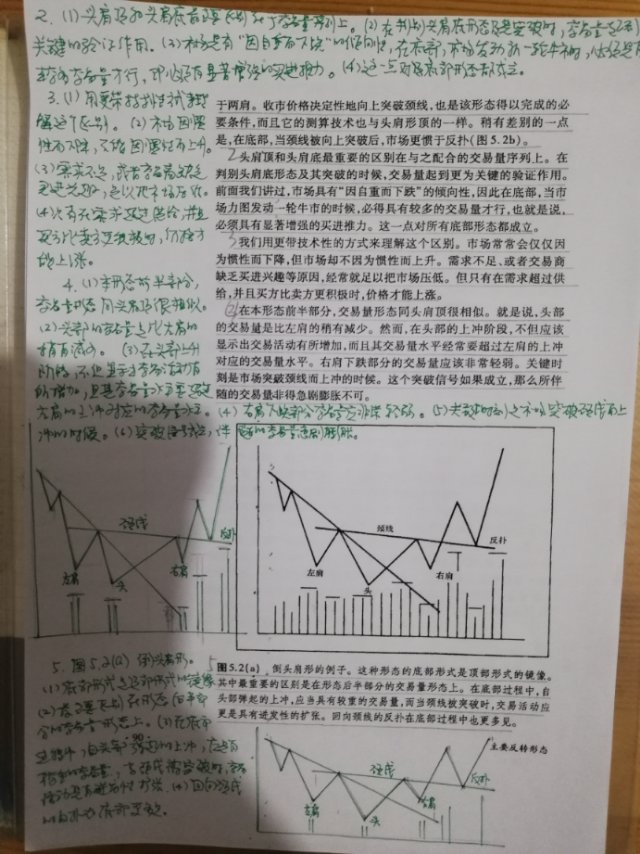 2. (1) 头肩顶和头肩底首要区别在于交易量序列上。(2) 在判别头肩底形态及其突破时，交易量起到
关键的验证作用。(3) 市场具有“因自重而下跌”的倾向性，在底部，市场发动新一轮牛市时，
较多交易量才行，即必须有显著增强的买进推力。(4) 这一点对所有底部形态都成立。
3. (1) 用更带技术性方式来理
解这个区别。(2) 市场因惯
性而下降，不能因惯性而上升。
(3) 需求不足，或者交易商缺乏
买进兴趣，足以把市场压低。
(4) 只有在需求超过供给，并且
买方比卖方更积极时，价格才
能上涨。
4. (1) 本形态前半部分，
交易量形态同头肩顶很相似。
(2) 头部的交易量是比左肩的
稍有减少。(3) 在头部上升
阶段，不但显示了交易活动有
所增加，且其交易量水平要超过
左肩的上冲对应的交易量水平。
(4) 右肩下跌部分交易量应非常轻弱。(5) 关键时刻是市场突破颈线而上
冲的时候。(6) 突破信号成立，伴随的交易量急剧膨胀。
于两肩。收市价格决定性地向上突破颈线，也是该形态得以完成的必
要条件，而且它的测算技术也与头肩形顶的一样。稍有差别的一点
是，在底部，当颈线被向上突破后，市场更惯于反扑(图 5.2b)。
2 头肩顶和头肩底最重要的区别在与之配合的交易量序列上。在
判别头肩底形态及其突破的时候，交易量起到更为关键的验证作用。
前面我们讲过，市场具有“因自重而下跌”的倾向性，因此在底部，当市
场力图发动一轮牛市的时候，必得具有较多的交易量才行，也就是说，
必须具有显著增强的买进推力。这一点对所有底部形态都成立。
3 我们用更带技术性的方式来理解这个区别。市场常常会仅仅因
为惯性而下降，但市场却不因为惯性而上升。需求不足、或者交易商
缺乏买进兴趣等原因，经常就足以把市场压低。但只有在需求超过供
给，并且买方比卖方更积极时，价格才能上涨。
在本形态前半部分，交易量形态同头肩顶很相似。就是说，头部
的交易量是比左肩的稍有减少。然而，在头部的上冲阶段，不但应该
显示出交易活动有所增加，而且其交易量水平经常要超过左肩的上冲
对应的交易量水平。右肩下跌部分的交易量应该非常轻弱。关键时
刻是市场突破颈线而上冲的时候。这个突破信号如果成立，那么所伴
随的交易量非得急剧膨胀不可。
颈线
反扑
左肩
头
右肩
颈线
反扑
左肩
头
右肩
5. 图5.2(a) 倒头肩形。
(1) 底部形式是顶部形式的镜像
(2) 首要区别在形态后半部
分的交易量形态上。(3) 在底部
过程中，自头部弹起的上冲，应当
较重的交易量，当颈线被突破时，交易
活动更具有迸发性扩张。(4) 回向颈线
的反扑在底部更多见。
5
图5.2(a) 倒头肩形的例子。这种形态的底部形式是顶部形式的镜像。
其中最重要的区别是在形态后半部分的交易量形态上。在底部过程中，自
头部弹起的上冲，应当具有较重的交易量，而当颈线被突破时，交易活动应
更是具有迸发性的扩张。回向颈线的反扑在底部过程中也更多见。
主要反转形态
颈线
反扑
左肩
头
右肩